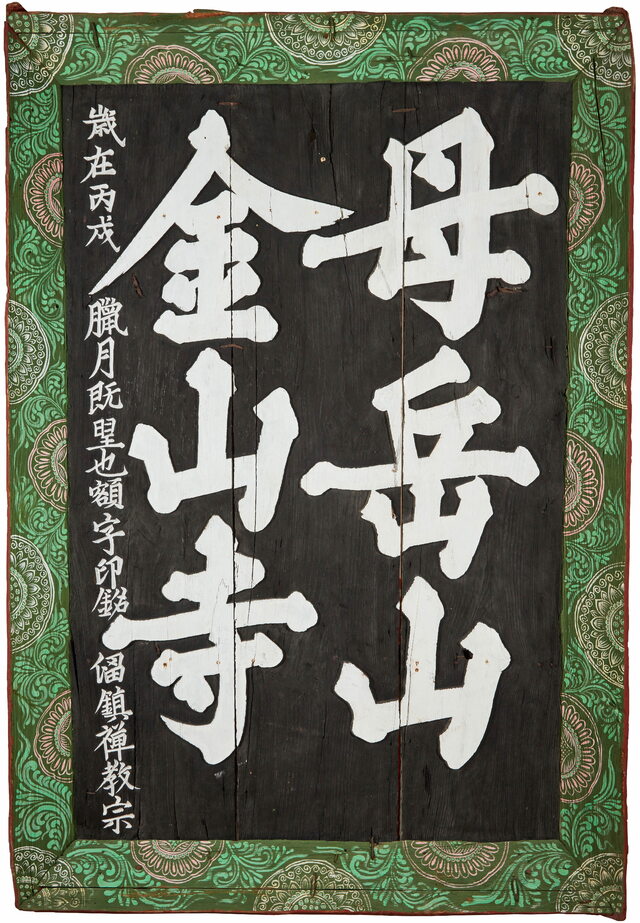 母岳山
金山寺
歲在丙戌 臘月既望也額字印銘 鎮禪教宗